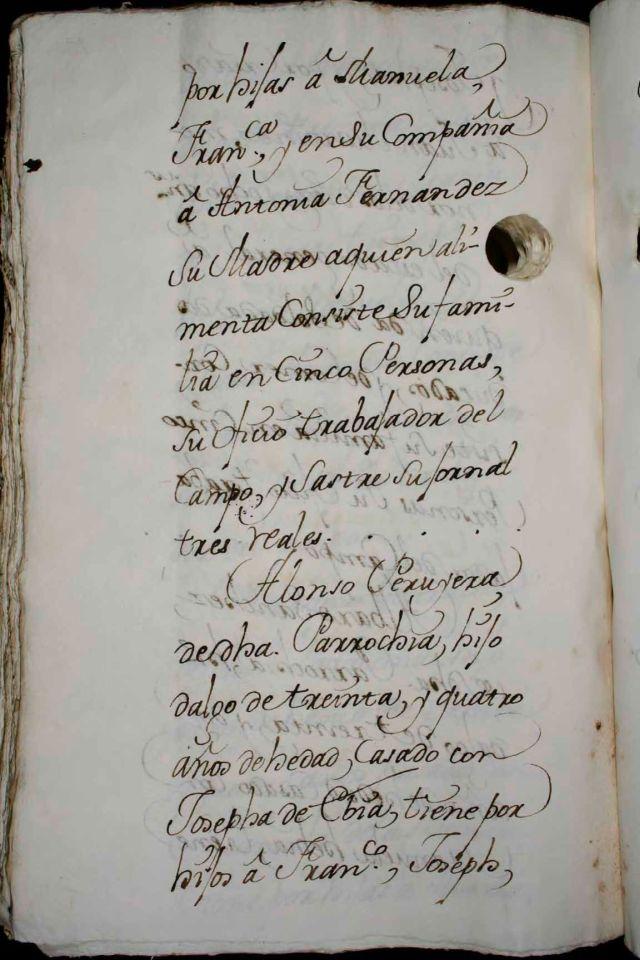 por hijas â Manuela,
Fran.ca, y en Su Compañia
â Antonia Fernandez
Su Madre aquien ali-
menta Consiste Su fami-
liâ en Cinco Personas,
su Oficio trabajador del
Campo, y Sastre su jornal
tres reales.
Alonso Peruyera,
de dha. Parrochia, hijo
dalgo de treinta, y quatro
años de hedad, Casado con
Josepha de Ebia, tiene por
hijos â Fran.co, Joseph,